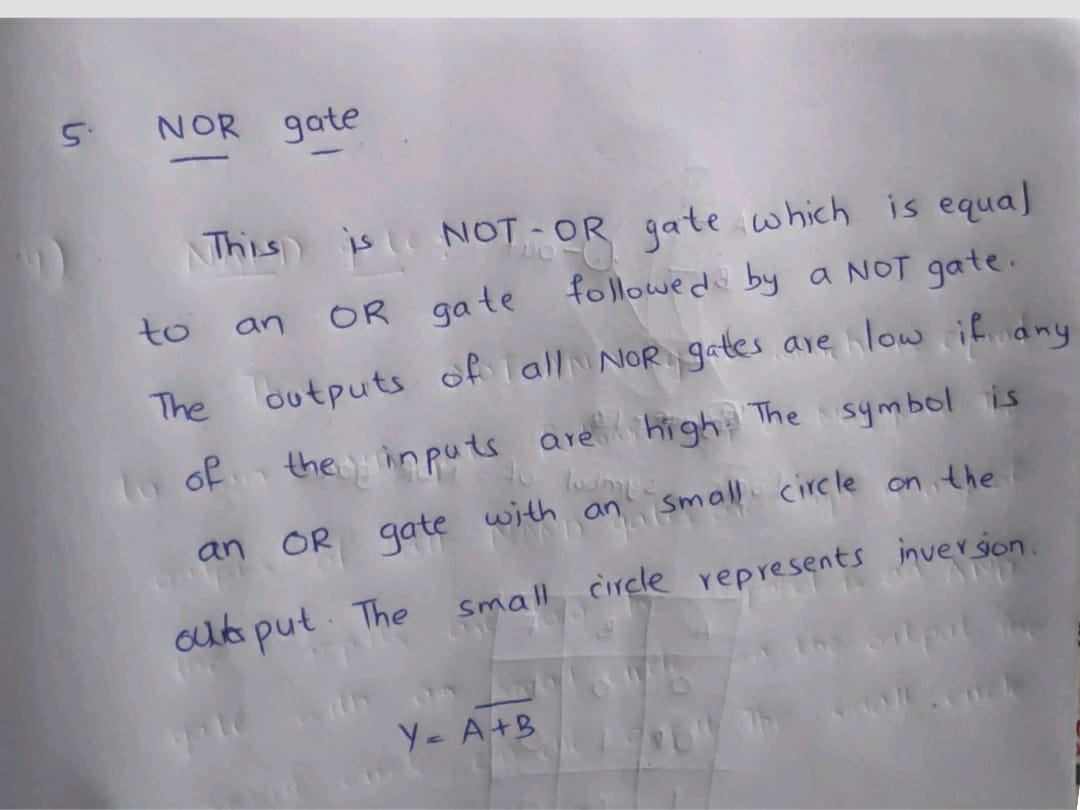 5. NOR gate
This is NOT-OR gate which is equal
to an OR gate followed by a NOT gate.
The outputs of all NOR gates are low if any
of the inputs are high. The symbol is
an OR gate with an small circle on the
output. The small circle represents inversion.
Y = A̅+̅B̅